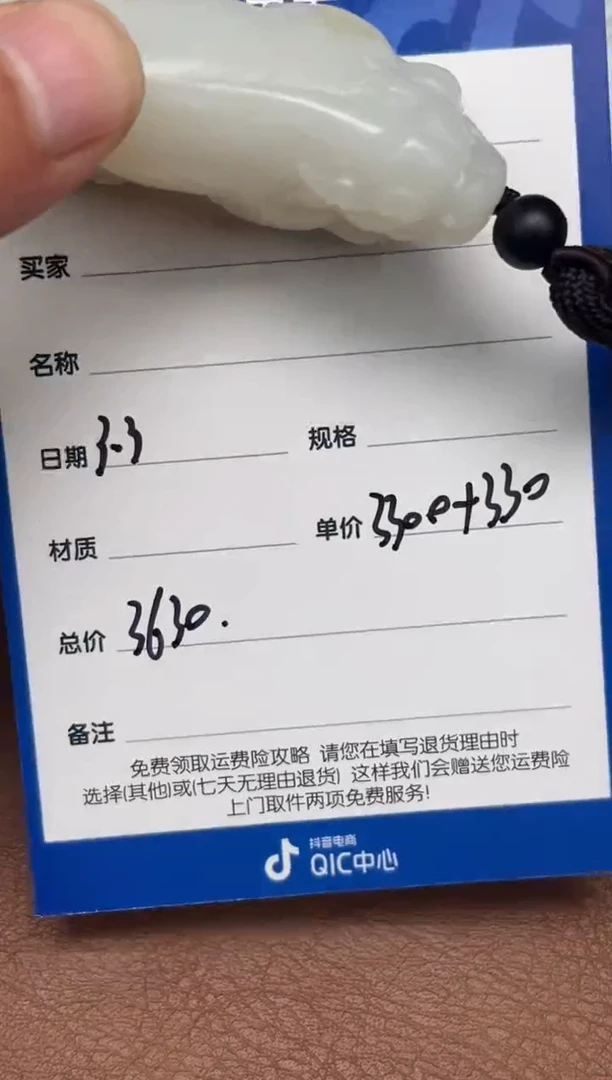 买家
名称
日期 3.3 规格
材质 单价 3300+330
总价 3630.
备注
免费领取运费险攻略 请您在填写退货理由时
选择(其他)或(七天无理由退货) 这样我们会赠送您运费险
上门取件两项免费服务!
抖音电商
QIC中心